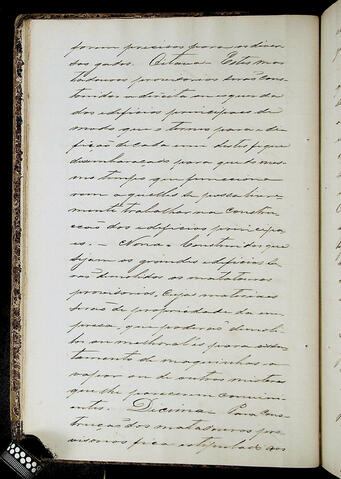 forem precisos para os diver
sos gados. Oitava Estes ma
tadouros provisorios serão cons
truidos a direita ou esquerda
dos edificios principaes de
modo que o terreno para a edi
ficação de cada um deles fique
desembaraçado para que ao mes
mo tempo que funccionarem
aquelles se possa livre
mente trabalhar na construc
ção dos edificios principa
es. - Nona - Construidos que
sejam os grandes edificios se
rão demolidos os matadouros
provisorios, cujos materiaes
serão de propriedade da em
presa, que poderá demoli
los ou melhoral-os para
de maquinhas a
vapor ou de outros misteres
que lhe parecerem convini
entes. Decima Para cons
trucção dos matadouros pro
visorios fica estipulado aos